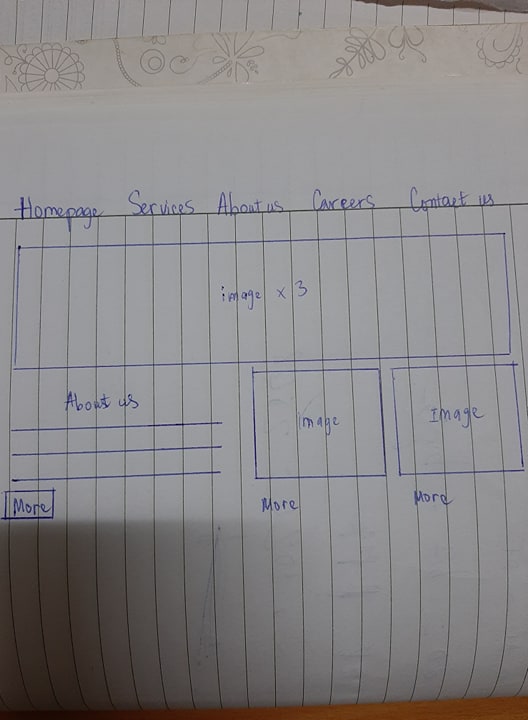 Homepage Services About us Careers Contact us
image x 3
About us
image
Image
More
More
More